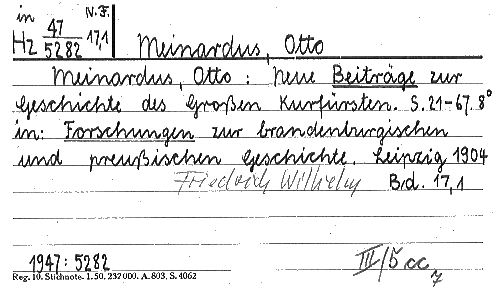 in N.F.
Hz 47/5282 17,1 Meinardus, Otto
Meinardus, Otto: Neue Beiträge zur
Geschichte des Großen Kurfürsten. S. 21-67. 8°
in: Forschungen zur brandenburgischen
und preußischen Geschichte. Leipzig 1904
Friedrich Wilhelm Bd. 17,1
1947: 5282 III/5 cc 7
Reg. 10. Stichnote. 1. 50. 232 000. A. 803. S. 4062